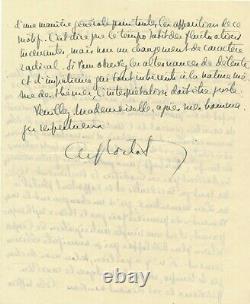 d'une manière générale pour toutes les apparitions de ce
motif. C'est dire que le tempo subit des fluctuations
mais non un changement de caractère
radical. Si vous observez les alternances de détente
et d'impatience qui sont inhérentes à la nature mê
me du thème, l'interprétation doit être juste.
Veuillez, Mademoiselle, agréer mes hommages
respectueux
Alf Cortot